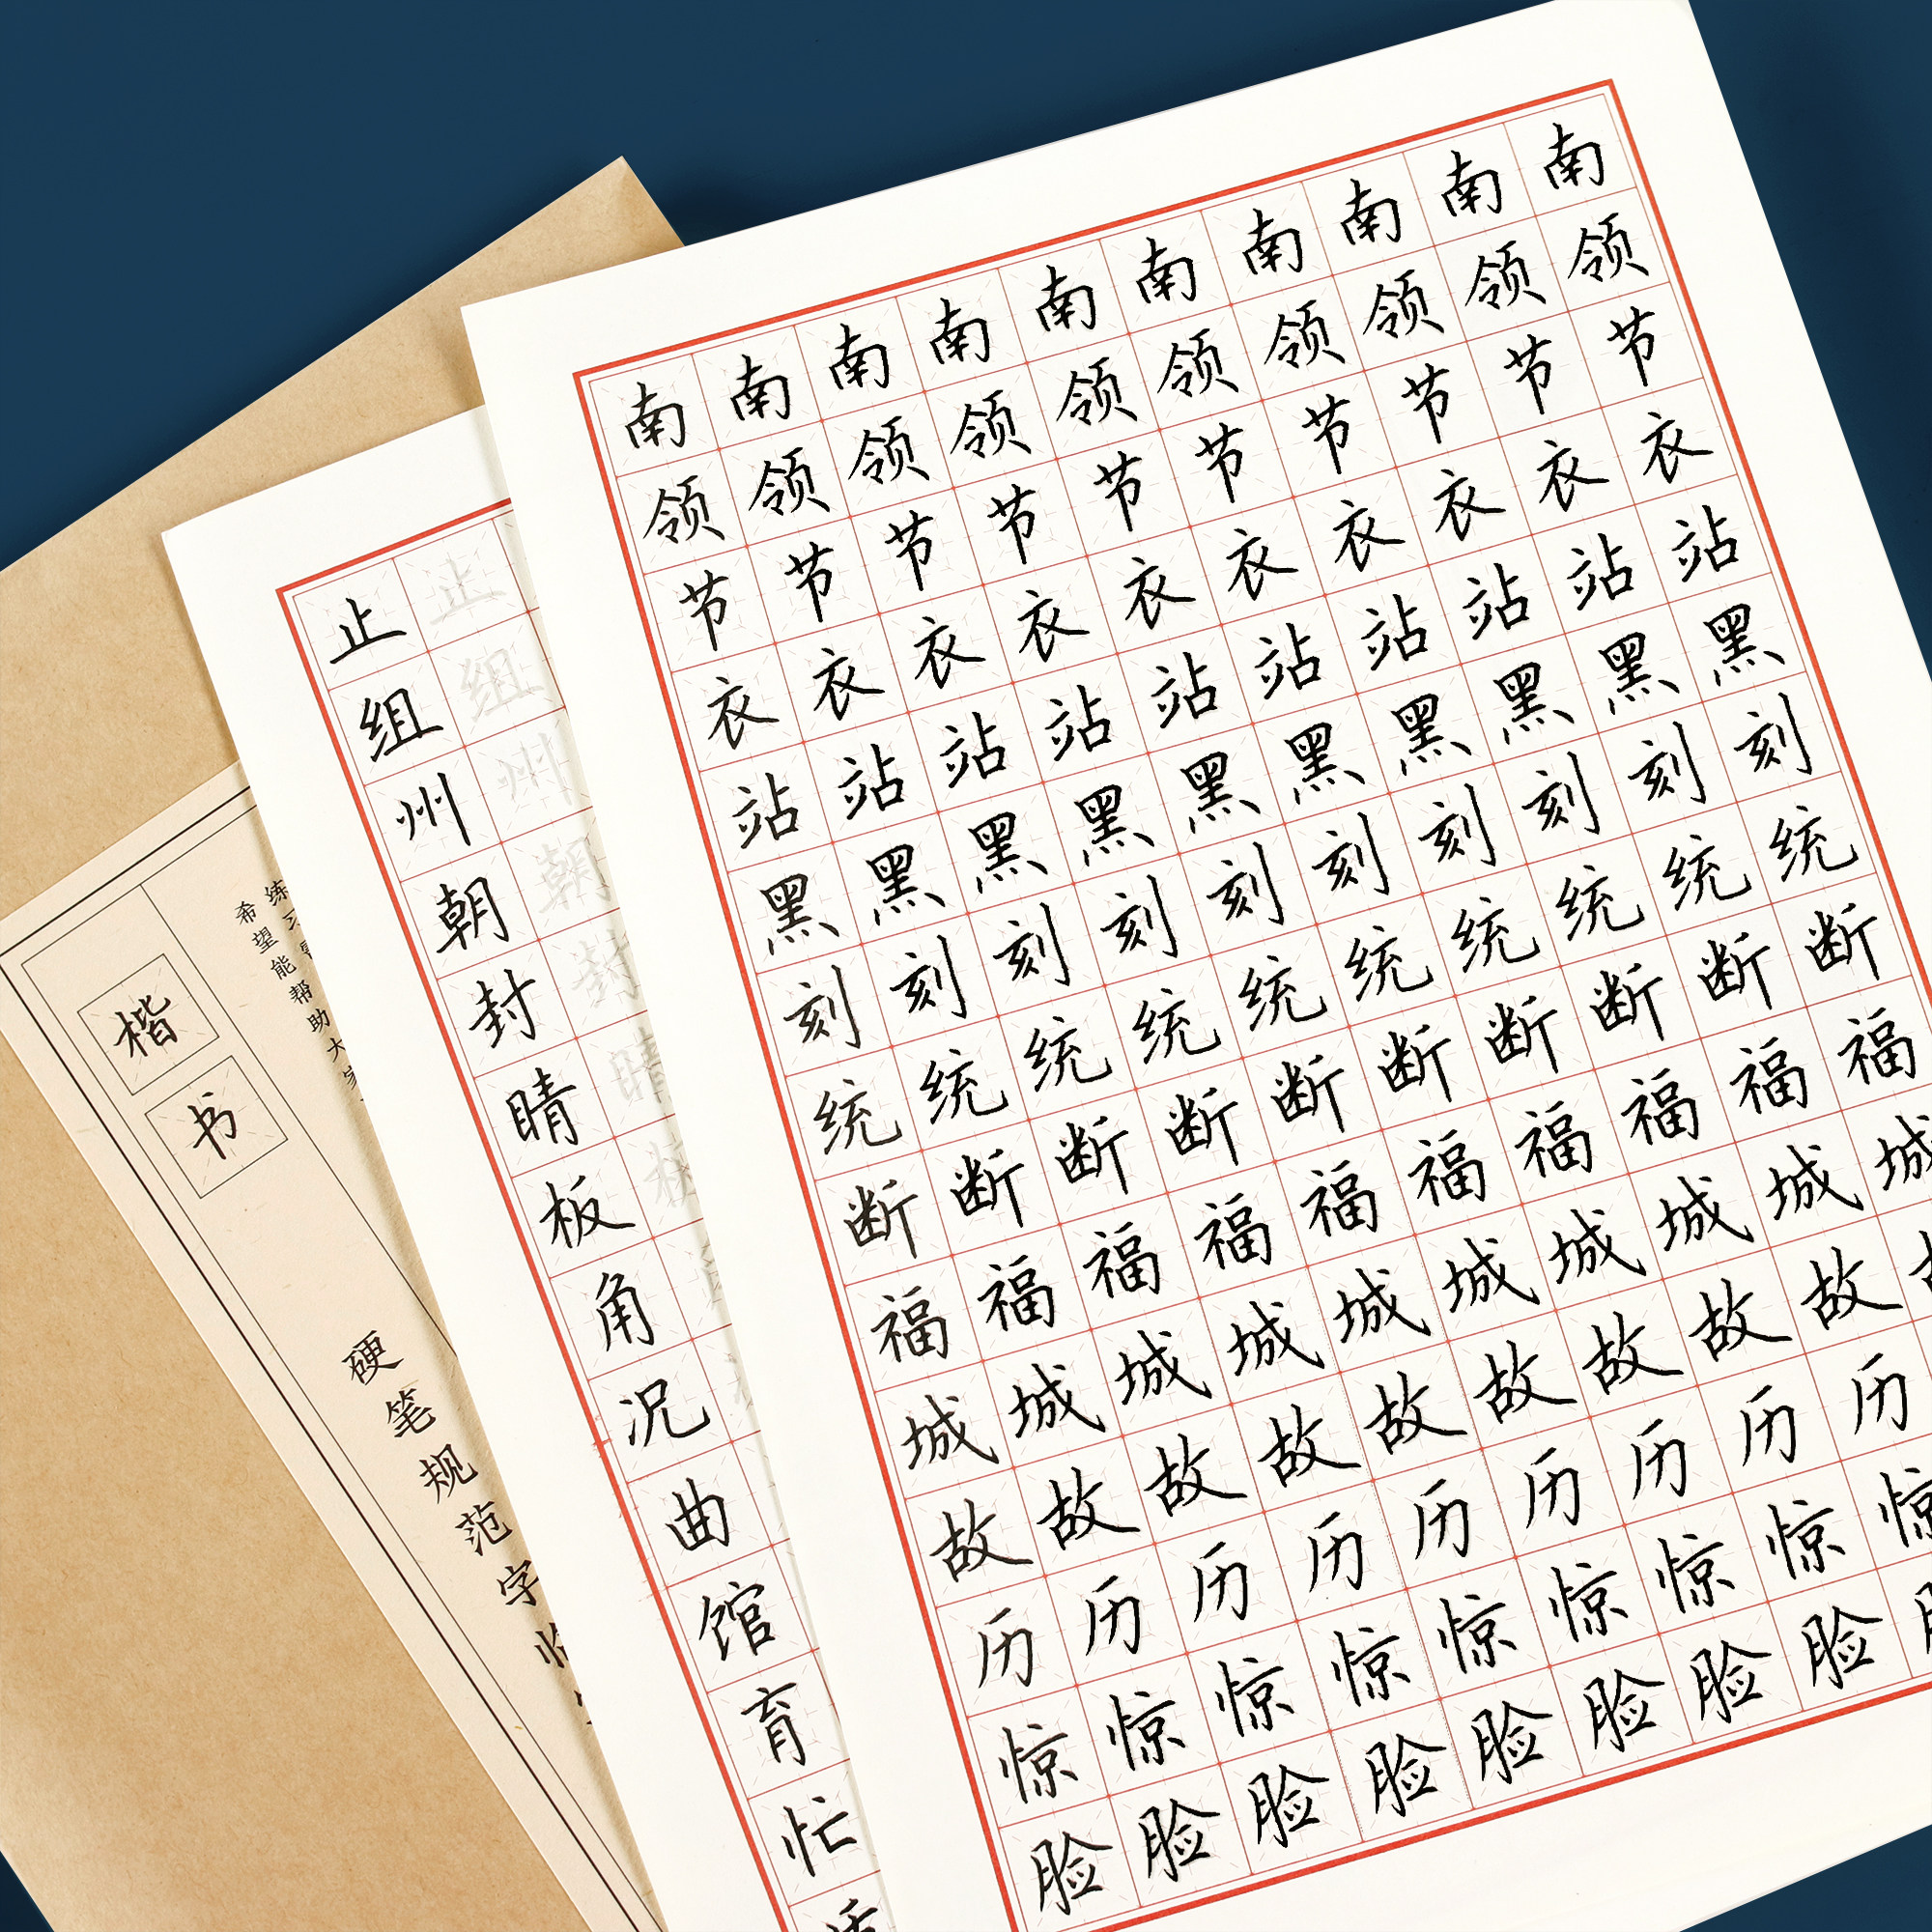 楷书
希望能帮助大家
硬笔规范字临
止止
组组
州州
朝朝
封封
晴晴
板板
角
况
曲
馆
育
忙
南南南南南南南南南南
领领领领领领领领领领
节节节节节节节节节节
衣衣衣衣衣衣衣衣衣衣
站站站站站站站站站站
黑黑黑黑黑黑黑黑黑黑
刻刻刻刻刻刻刻刻刻刻
统统统统统统统统统统
断断断断断断断断断断
福福福福福福福福福福
城城城城城城城城城城
故故故故故故故故故
历历历历历历历历历
惊惊惊惊惊惊惊惊惊
脸脸脸脸脸脸脸脸